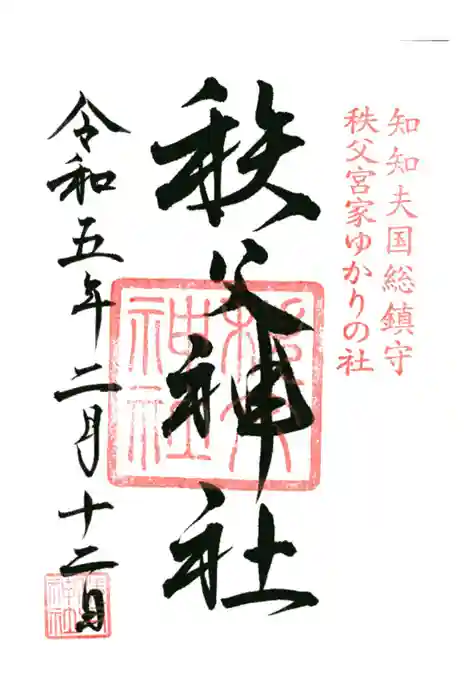 知知夫国総鎮守
秩父宮家ゆかりの社
秩父神社
令和五年二月十二日
秩父
神社